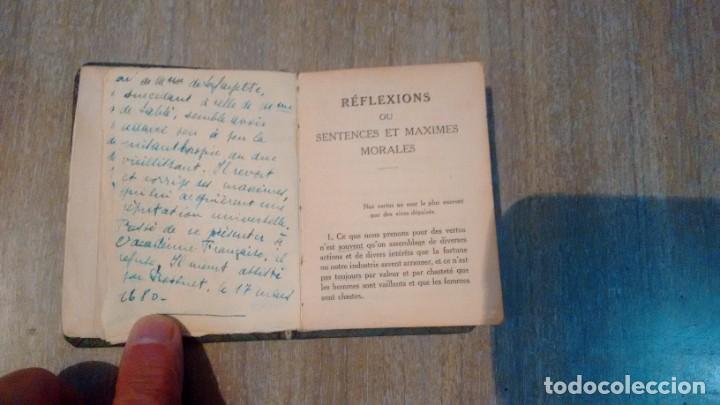 de Mme de Lafayette,
succédant à celle de Mme
de Sablé, semble avoir
adouci peu à peu la
misanthropie du duc
vieillissant. Il revoit
et corrige ses maximes,
qui lui acquièrent une
réputation universelle.
Pressé de se présenter à
l'académie Française, il
refuse. Il meurt assisté
par Bossuet, le 17 mars
1680.
RÉFLEXIONS
OU
SENTENCES ET MAXIMES
MORALES
Nos vertus ne sont le plus souvent
que des vices déguisés.
1. Ce que nous prenons pour des vertus
n'est souvent qu'un assemblage de diverses
actions et de divers intérêts que la fortune
ou notre industrie savent arranger, et ce n'est
pas toujours par valeur et par chasteté que
les hommes sont vaillants et que les femmes
sont chastes.
todocoleccion.net